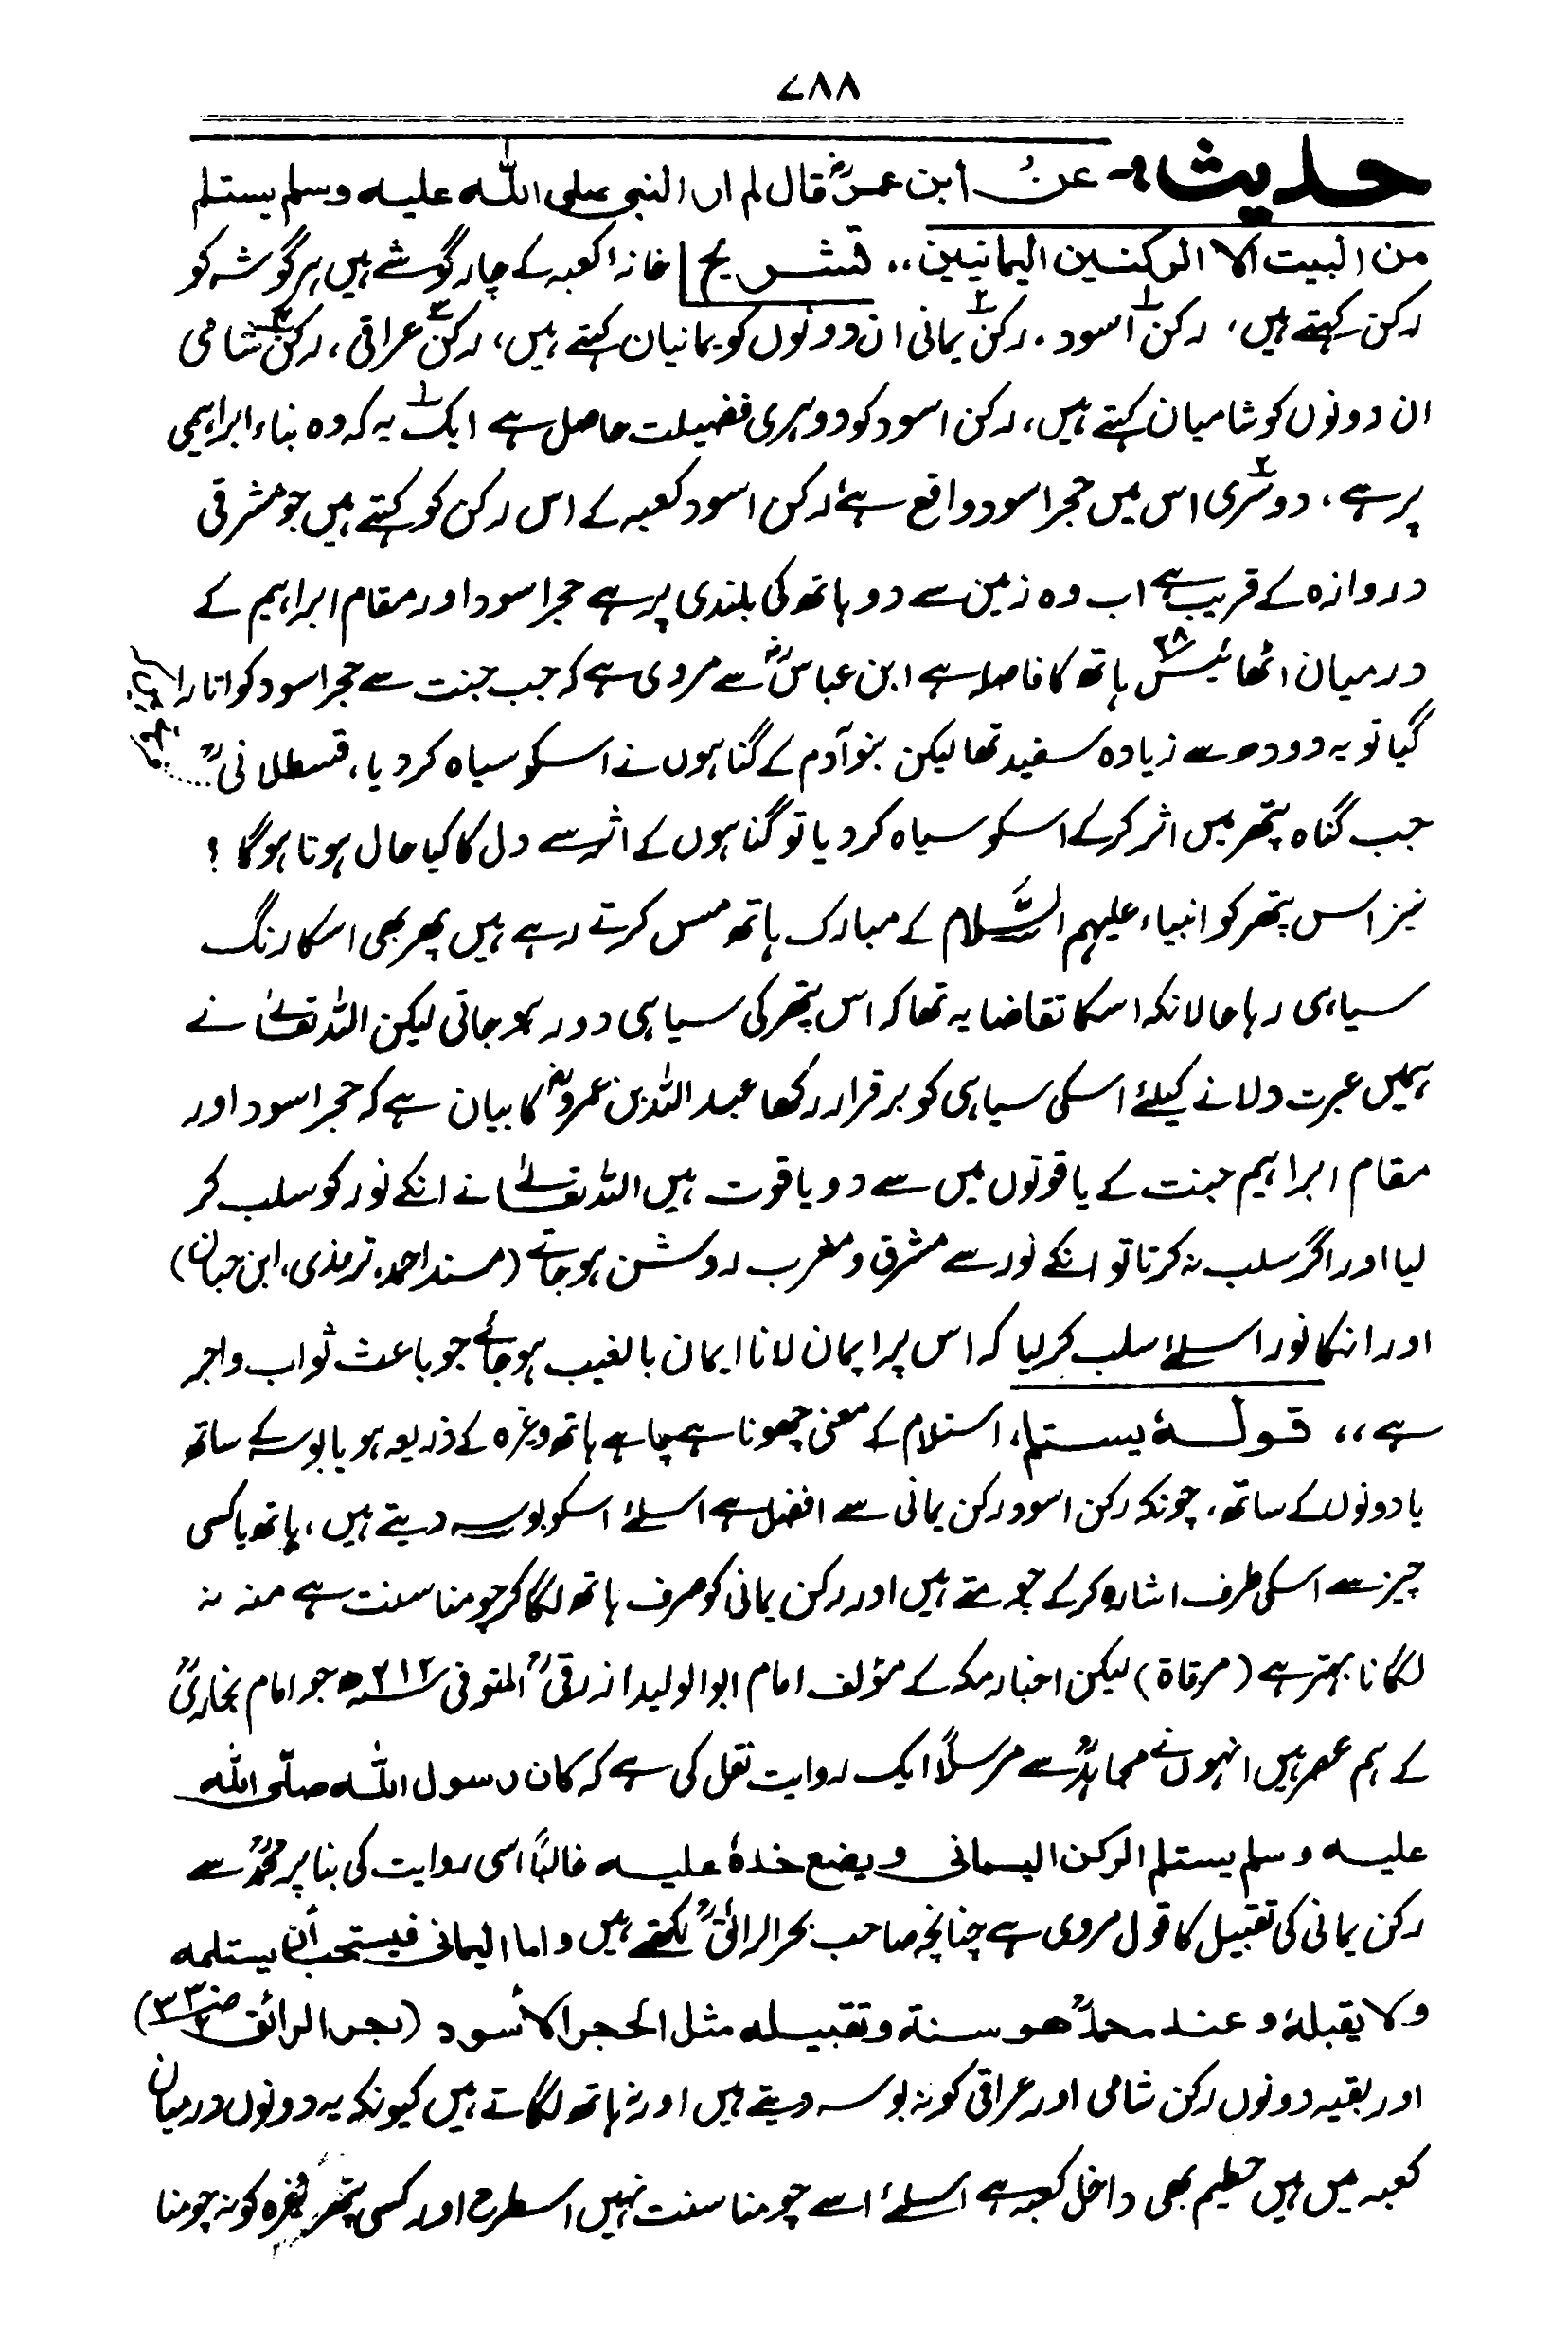 ۷۸۸
حدیث:- عن ابن عمرؓ قال لم ار النبی صلی اللہ علیہ وسلم یستلم
من البیت الا الرکنین الیمانیین،، تشریح خانہ کعبہ کے چار گوشے ہیں ہر گوشہ کو
رکن کہتے ہیں، رکن۱ اسود، رکن۲ یمانی ان دونوں کو یمانیان کہتے ہیں، رکن۳ عراقی، رکن۴ شامی
ان دونوں کو شامیان کہتے ہیں، رکن اسود کو دوہری فضیلت حاصل ہے ایک۱ یہ کہ وہ بناء ابراہیمی
پر ہے، دوسری۲ اس میں حجر اسود واقع ہے، رکن اسود کعبہ کے اس رکن کو کہتے ہیں جو مشرقی
دروازہ کے قریب ہے اب وہ زمین سے دو ہاتھ کی بلندی پر ہے حجر اسود اور مقام ابراہیم کے
درمیان اٹھائیس۲۸ ہاتھ کا فاصلہ ہے ابن عباسؓ سے مروی ہے کہ جب جنت سے حجر اسود کو اتارا
گیا تو یہ دودھ سے زیادہ سفید تھا لیکن بنو آدم کے گناہوں نے اسکو سیاہ کردیا، قسطلانیؒ
جب گناہ پتھر میں اثر کرکے اسکو سیاہ کردیا تو گناہوں کے اثر سے دل کا کیا حال ہوتا ہوگا ؟
نیز اس پتھر کو انبیاء علیہم السَّلام کے مبارک ہاتھ مس کرتے رہے ہیں پھر بھی اسکا رنگ
سیاہی رہا حالانکہ اسکا تقاضا یہ تھا کہ اس پتھر کی سیاہی دور ہو جاتی لیکن اللہ تعالیٰ نے
ہمیں عبرت دلانے کیلئے اسکی سیاہی کو برقرار رکھا عبد اللہ بن عمروؓ کا بیان ہے کہ حجر اسود اور
مقام ابراہیم جنت کے یاقوتوں میں سے دو یاقوت ہیں اللہ تعالیٰ نے انکے نور کو سلب کر
لیا اور اگر سلب نہ کرتا تو انکے نور سے مشرق و مغرب روشن ہوجاتے (مسند احمد، ترمذی، ابن حبان)
اور انکا نور اسلئے سلب کرلیا کہ اس پر ایمان لانا ایمان بالغیب ہوجائے جو باعث ثواب و اجر
ہے،، قولہٗ یستلم، استلام کے معنی چھونا ہے چاہے ہاتھ وغرہ کے ذریعہ ہو یا بوسہ کے ساتھ
یا دونوں کے ساتھ، چونکہ رکن اسود رکن یمانی سے افضل ہے اسلئے اسکو بوسہ دیتے ہیں، ہاتھ یا کسی
چیز سے اسکی طرف اشارہ کرکے چومتے ہیں اور رکن یمانی کو صرف ہاتھ لگا کر چومنا سنت ہے منہ نہ
لگانا بہتر ہے (مرقاۃ) لیکن اخبار مکہ کے مؤلف امام ابو الولید ازرقیؒ المتوفی ۲۱۲ھ جو امام بخاریؒ
کے ہم عصر ہیں انہوں نے مجاہدؒ سے مرسلاً ایک روایت نقل کی ہے کہ کان رسول اللہ صلّی اللہ
علیہ وسلم یستلم الرکن الیمانی ویضع خدہٗ علیہ غالباً اسی روایت کی بنا پر محمدؒ سے
رکن یمانی کی تقبیل کا قول مروی ہے چنانچہ صاحب بحر الرائقؒ لکھتے ہیں واما الیمانی فیستحب أن یستلمہ
ولا یقبلہٗ وعند محمدؒ ھو سنۃ وتقبیلہ مثل الحجر الأسود (بحر الرائق
اور بقیہ دونوں رکن شامی اور عراقی کو نہ بوسہ دیتے ہیں اور نہ ہاتھ لگاتے ہیں کیونکہ یہ دونوں درمیان
کعبہ میں ہیں حطیم بھی داخل کعبہ ہے اسلئے اسے چومنا سنت نہیں اسطرح اور کسی پتھر وغیرہ کو نہ چومنا